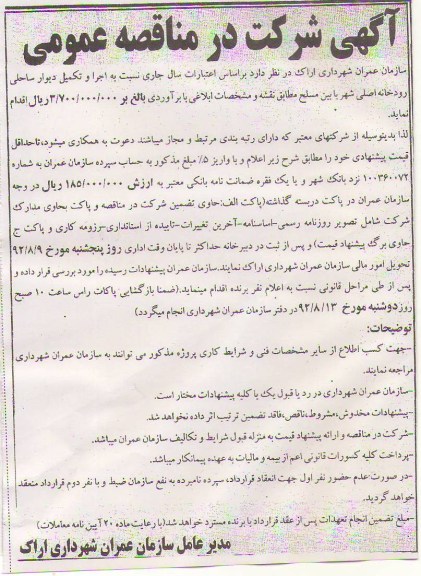 آگهی شرکت در مناقصه عمومی
سازمان عمران شهرداری اراک در نظر دارد براساس اعتبارات سال جاری نسبت به اجرا و تکمیل دیوار ساحلی
رودخانه اصلی شهر با بتن مسلح مطابق نقشه و مشخصات ابلاغی با برآوردی بالغ بر ۳/۷۰۰/۰۰۰/۰۰۰ریال اقدام
نماید.
لذا بدینوسیله از شرکتهای معتبر که دارای رتبه بندی مرتبط و مجاز میباشند دعوت به همکاری میشود،تاحداقل
قیمت پیشنهادی خود را مطابق شرح زیر اعلام و با واریز ۵٪ مبلغ مذکور به حساب سپرده سازمان عمران به شماره
۱۰۰۳۶۰۰۷۲ نزد بانک شهر و یا یک فقره ضمانت نامه بانکی معتبر به ارزش ۱۸۵/۰۰۰/۰۰۰ ریال در وجه
سازمان عمران در پاکت دربسته گذاشته(پاکت الف: حاوی تضمین شرکت در مناقصه و پاکت بحاوی مدارک
شرکت شامل تصویر روزنامه رسمی-اساسنامه-آخرین تغییرات-تاییده از استانداری-رزومه کاری و پاکت ج
حاوی برگ پیشنهاد قیمت) و پس از ثبت در دبیرخانه حداکثر تا پایان وقت اداری روز پنجشنبه مورخ ۹۲/۸/۹
تحویل امور مالی سازمان عمران شهرداری اراک نمایند.سازمان عمران پیشنهادات رسیده را مورد بررسی قرار داده و
پس از طی مراحل قانونی نسبت به اعلام نفر برنده اقدام مینماید.(ضمنا بازگشایی پاکات راس ساعت ۱۰ صبح
روز دوشنبه مورخ ۹۲/۸/۱۳ در دفتر سازمان عمران شهرداری انجام میگردد)
توضیحات:
-جهت کسب اطلاع از سایر مشخصات فنی و شرایط کاری پروژه مذکور می توانند به سازمان عمران شهرداری
مراجعه نمایند.
-سازمان عمران شهرداری در رد یا قبول یک یا کلیه پیشنهادات مختار است.
-پیشنهادات مخدوش،مشروط،ناقص،فاقد تضمین ترتیب اثر داده نخواهد شد.
-شرکت در مناقصه و ارائه پیشنهاد قیمت به منزله قبول شرایط و تکالیف سازمان عمران میباشد.
-پرداخت کلیه کسورات قانونی اعم از بیمه و مالیات به عهده پیمانکار میباشد.
-در صورت عدم حضور نفر اول جهت انعقاد قرارداد، سپرده نامبرده به نفع سازمان ضبط و با نفر دوم قرارداد منعقد
خواهد گردید.
-مبلغ تضمین انجام تعهدات پس از عقد قرارداد با برنده مسترد خواهد شد(با رعایت ماده ۲۰ آیین نامه معاملات)
مدیر عامل سازمان عمران شهرداری اراک